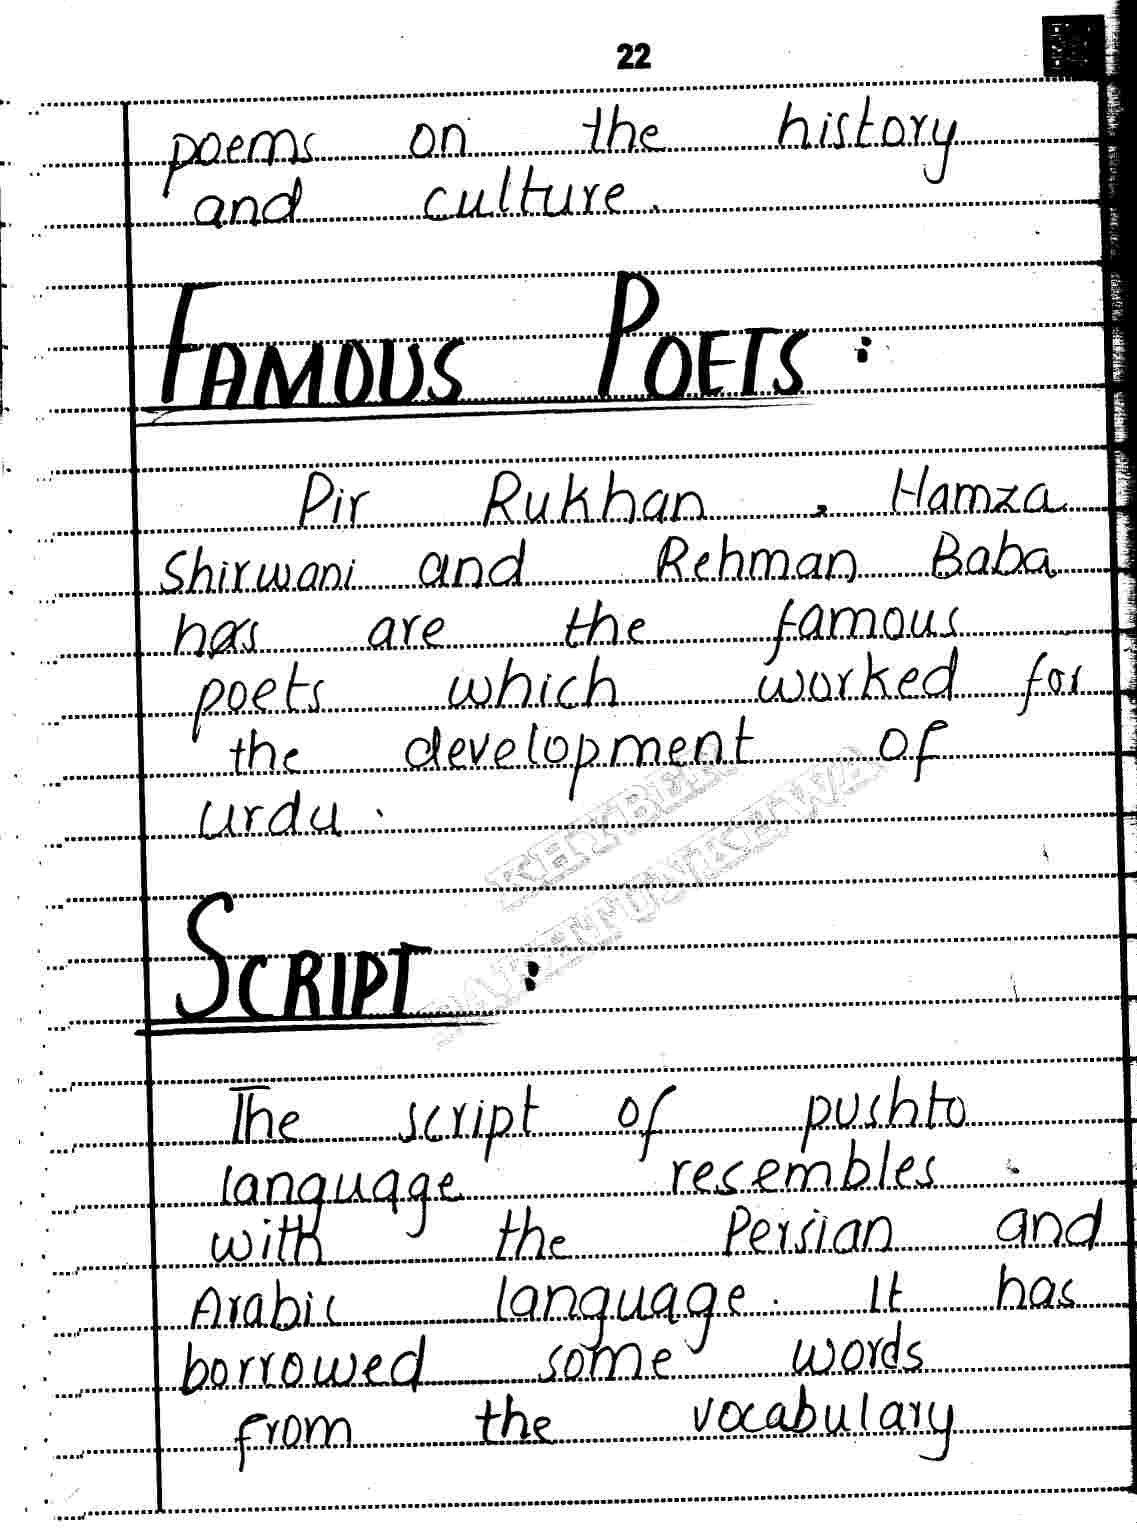 22
poems on the history
and culture.
FAMOUS POETS :
Pir Rukhan , Hamza
Shirwani and Rehman Baba
has are the famous
poets which worked for
the development of
urdu.
KHYBER
PAKHTUNKHWA
SCRIPT :
The script of pushto
language resembles
with the Persian and
Arabic language. It has
borrowed some words
from the vocabulary